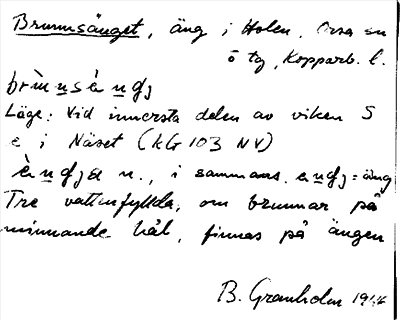 Brunnsänget, äng i Holen, Orsa sn
ö tg, Kopparb. l.
Läge: Vid innersta delen av viken S
e i Näset (KG 103 NV)
n., i sammans. = äng
Tre vattenfyllda, om brunnar på
minnande hål, finnas på ängen
B. Granholm